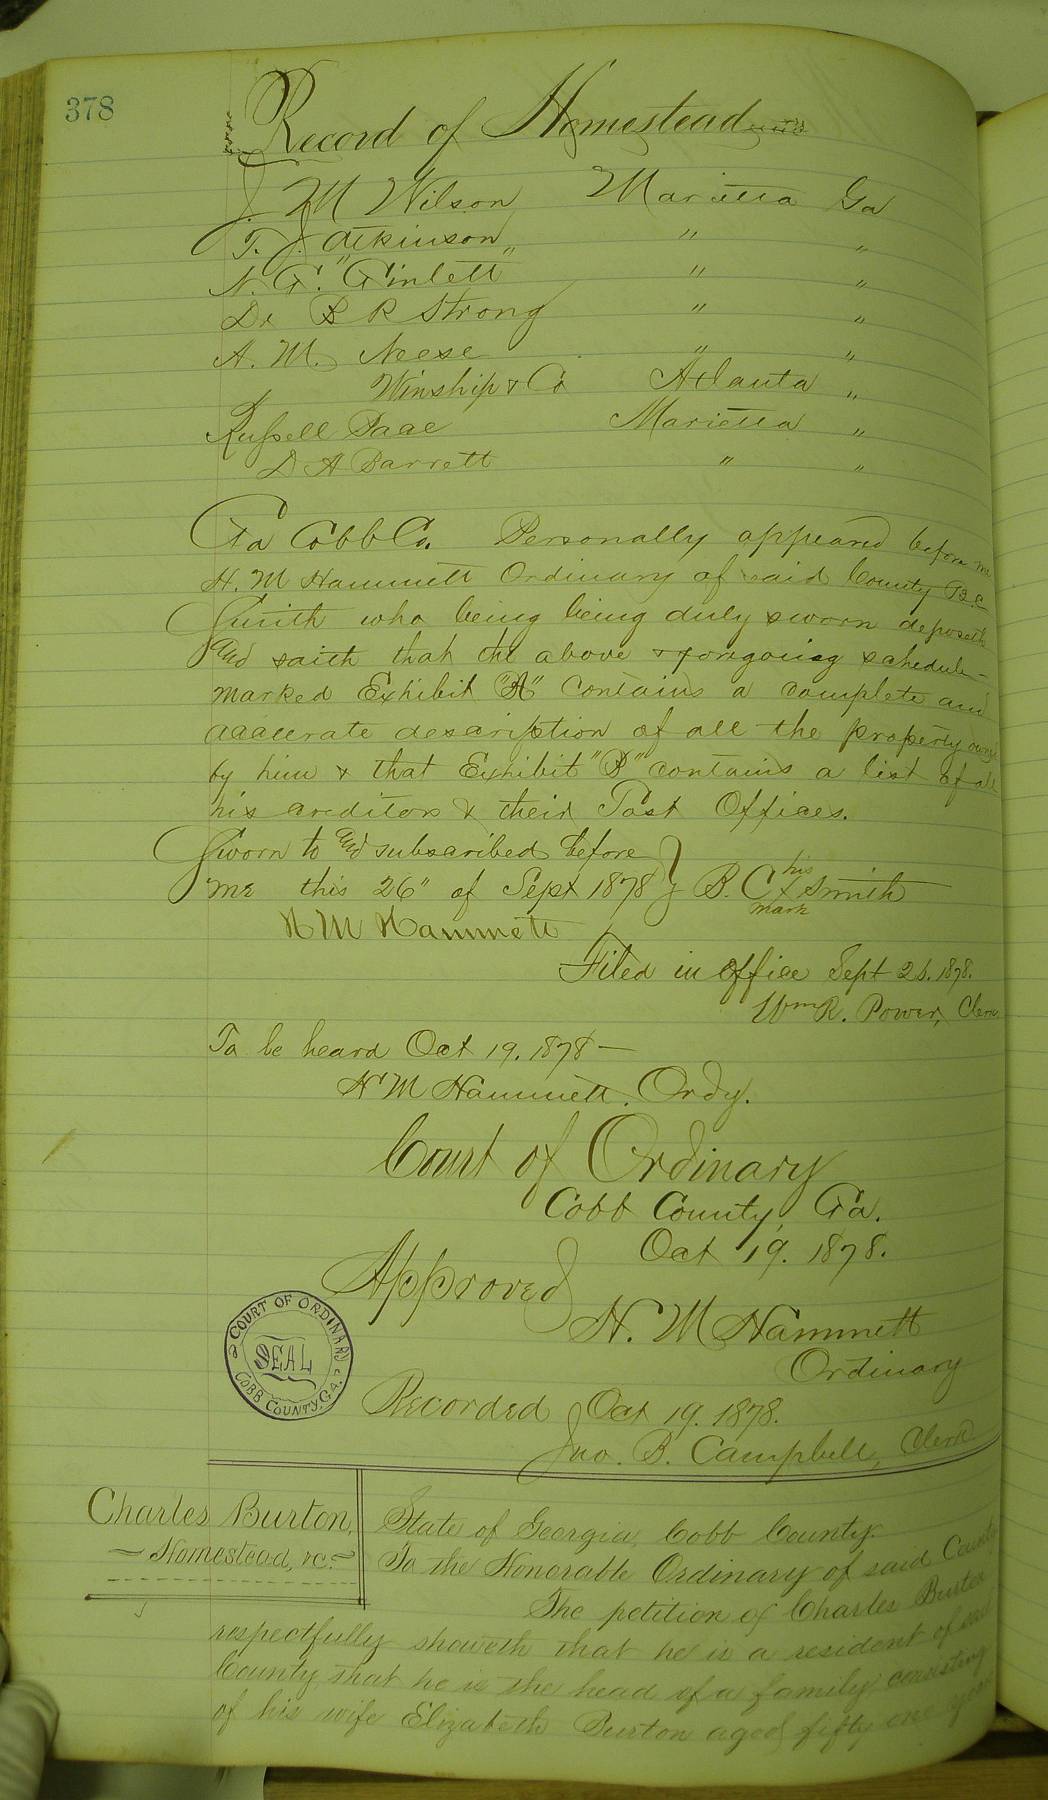 378
Record of Homestead
J. M Wilson Marietta Ga
T. J. Atkinson " "
N. G. Gimlett " "
Dr B R Strong " "
A. M. Neese " "
Winship & Co Atlanta "
Russell Page Marietta "
D A Barrett " "
Ga Cobb Co. Personally appeared before me
H. M Hammett Ordinary of said County B. C
Smith who being being duly sworn deposeth
and saith that the above & forgoing schedule
marked Exhibit "A" contains a complete and
accurate description of all the property owned
by him & that Exhibit "B" contains a list of all
his creditors & their Post Offices.
Sworn to and subscribed before
me this 26" of Sept 1878 } B. C his x mark Smith
H M Hammett
Filed in office Sept 26. 1878.
Wm R. Power, Clerk
To be heard Oct 19. 1878 —
H M Hammett. Ordy.
Court of Ordinary
Cobb County, Ga.
Oct 19. 1878.
Approved
H. M Hammett
Ordinary
COURT OF ORDINARY
SEAL
COBB COUNTY, GA.
Recorded Oct 19. 1878.
Jno. B. Campbell, Clerk
Charles Burton,
Homestead, &c.
State of Georgia, Cobb County.
To the Honorable Ordinary of said County
The petition of Charles Burton
respectfully showeth that he is a resident of said
County that he is the head of a family consisting
of his wife Elizabeth Burton aged fifty one years